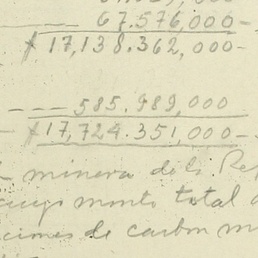 67.576,000-
$17,138.362,000-
--- 585.989,000
$17,724.351,000-
minera de la Rep
cuyo monto total
ciones de carbon m